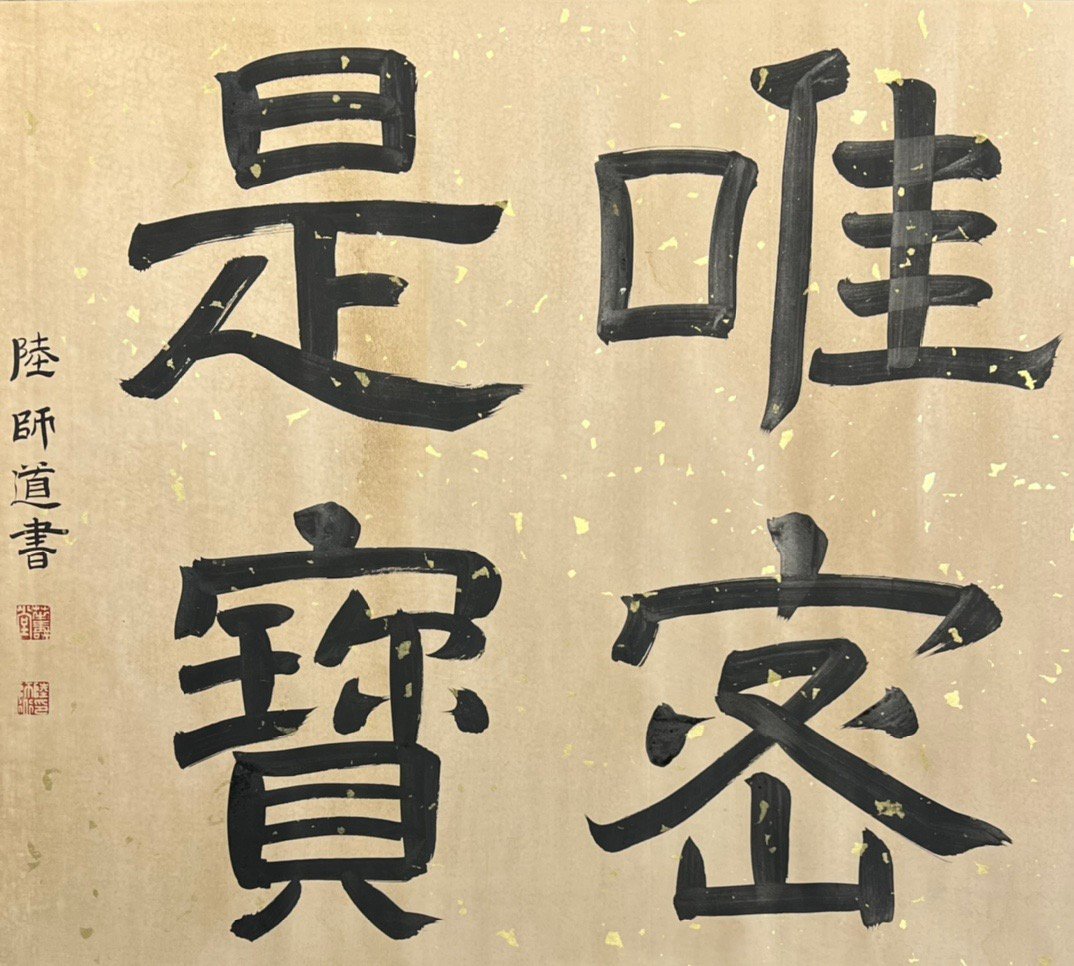 唯密
是寳
陸師道書